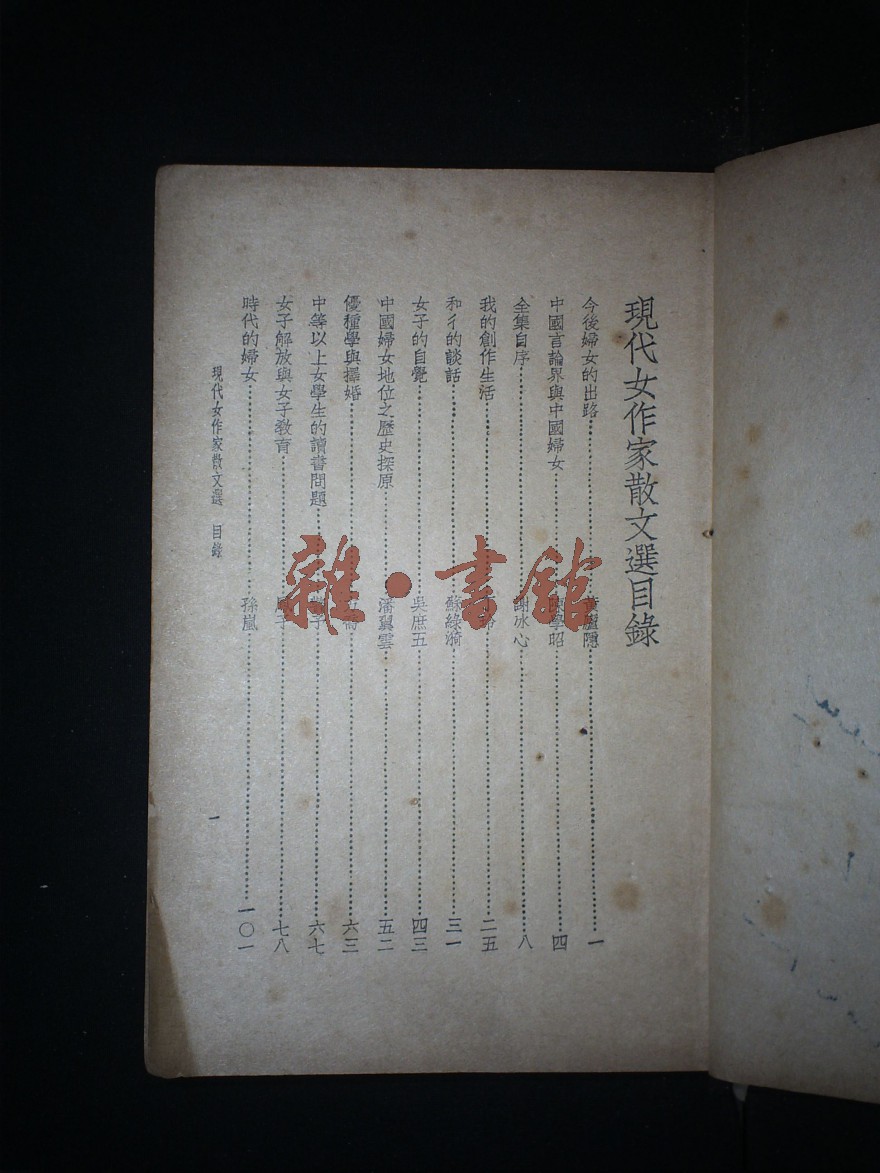 現代女作家散文選目錄
今後婦女的出路 黃廬隱 一
中國言論界與中國婦女 陳學昭 四
全集自序 謝冰心 八
我的創作生活 二五
和彳的談話 蘇綠漪 三一
女子的自覺 吳庶五 四三
中國婦女地位之歷史探原 潘翼雲 五二
優種學與擇婚 六三
中等以上女學生的讀書問題 子 六七
女子解放與女子教育 子 七八
時代的婦女 孫嵐 一〇一
現代女作家散文選 目錄
一
雜·書館